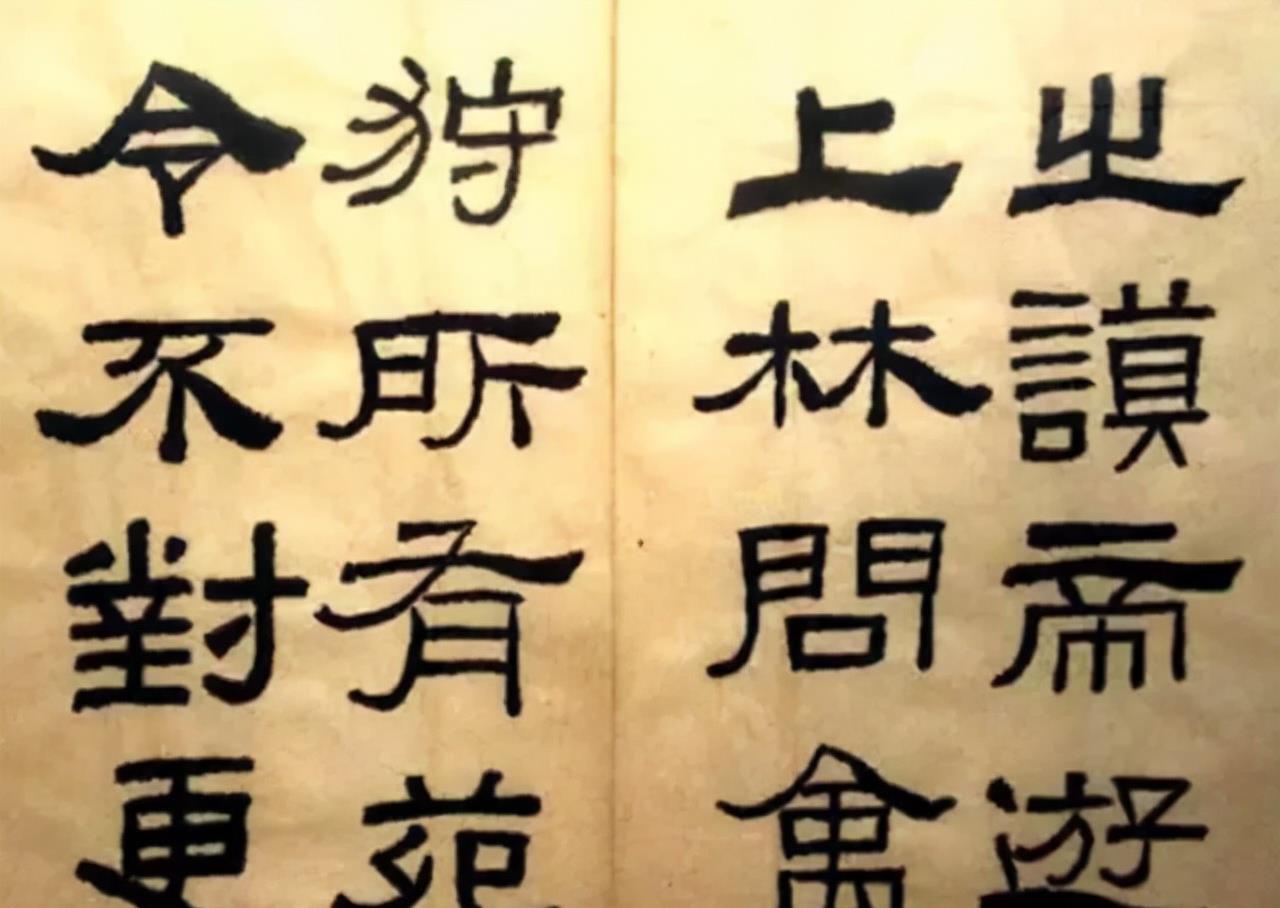 之謨帝遊
上林問禽
狩所有苑
令不對更